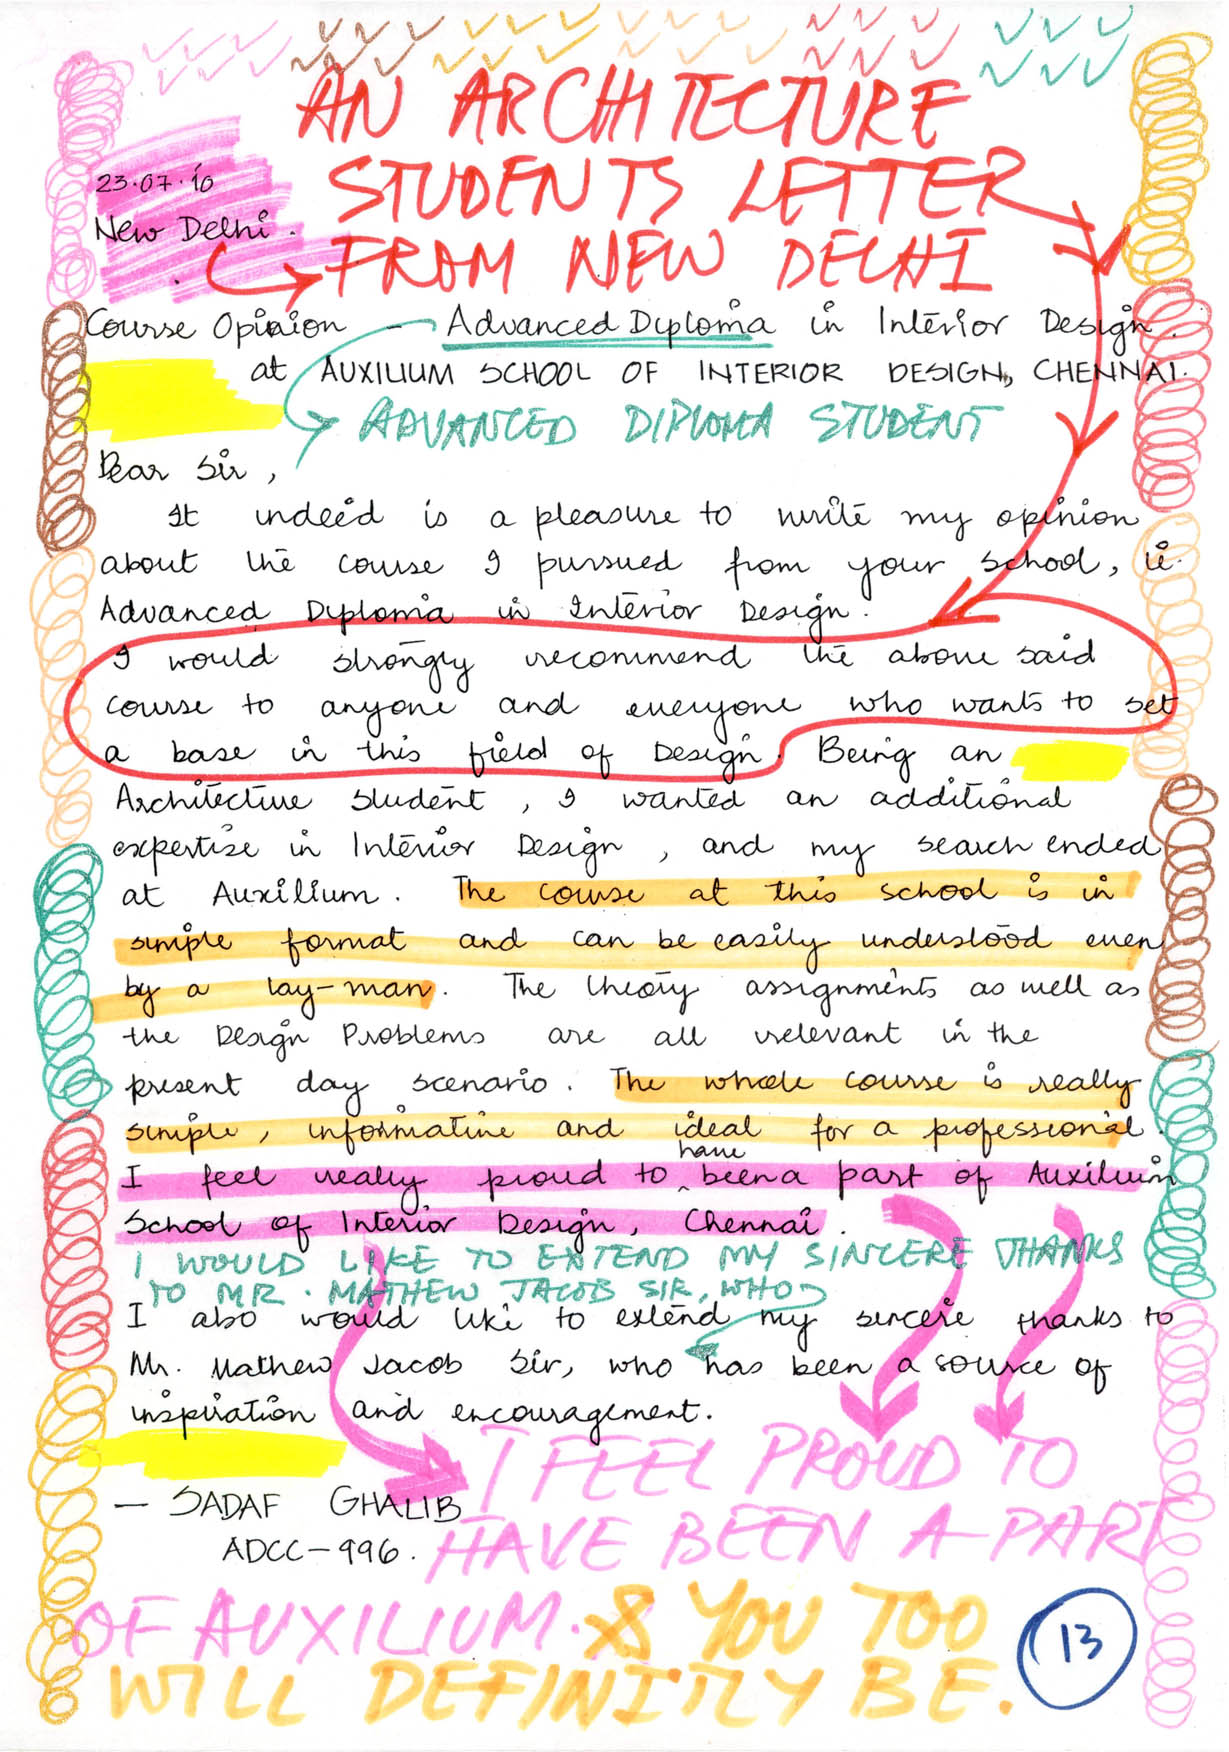 AN ARCHITECTURE
STUDENTS LETTER
FROM NEW DELHI
23.07.10
New Delhi.
Course Opinion - Advanced Diploma in Interior Design.
at AUXILIUM SCHOOL OF INTERIOR DESIGN, CHENNAI.
ADVANCED DIPLOMA STUDENT
Dear Sir,
It indeed is a pleasure to write my opinion
about the course I pursued from your school, ie.
Advanced Diploma in Interior Design.
I would strongly recommend the above said
course to anyone and everyone who wants to set
a base in this field of Design. Being an
Architecture student, I wanted an additional
expertise in Interior Design, and my search ended
at Auxilium. The course at this school is in
simple format and can be easily understood even
by a lay-man. The theory assignments as well as
the Design Problems are all relevant in the
present day scenario. The whole course is really
simple, informative and ideal for a professional.
I feel really proud to have been a part of Auxilium
School of Interior Design, Chennai.
I WOULD LIKE TO EXTEND MY SINCERE THANKS
TO MR. MATHEW JACOB SIR, WHO
I also would like to extend my sincere thanks to
Mr. Mathew Jacob Sir, who has been a source of
inspiration and encouragement.
I FEEL PROUD TO
- SADAF GHALIB
HAVE BEEN A PART
ADCC-996.
OF AUXILIUM. & YOU TOO
WILL DEFINITLY BE.
13